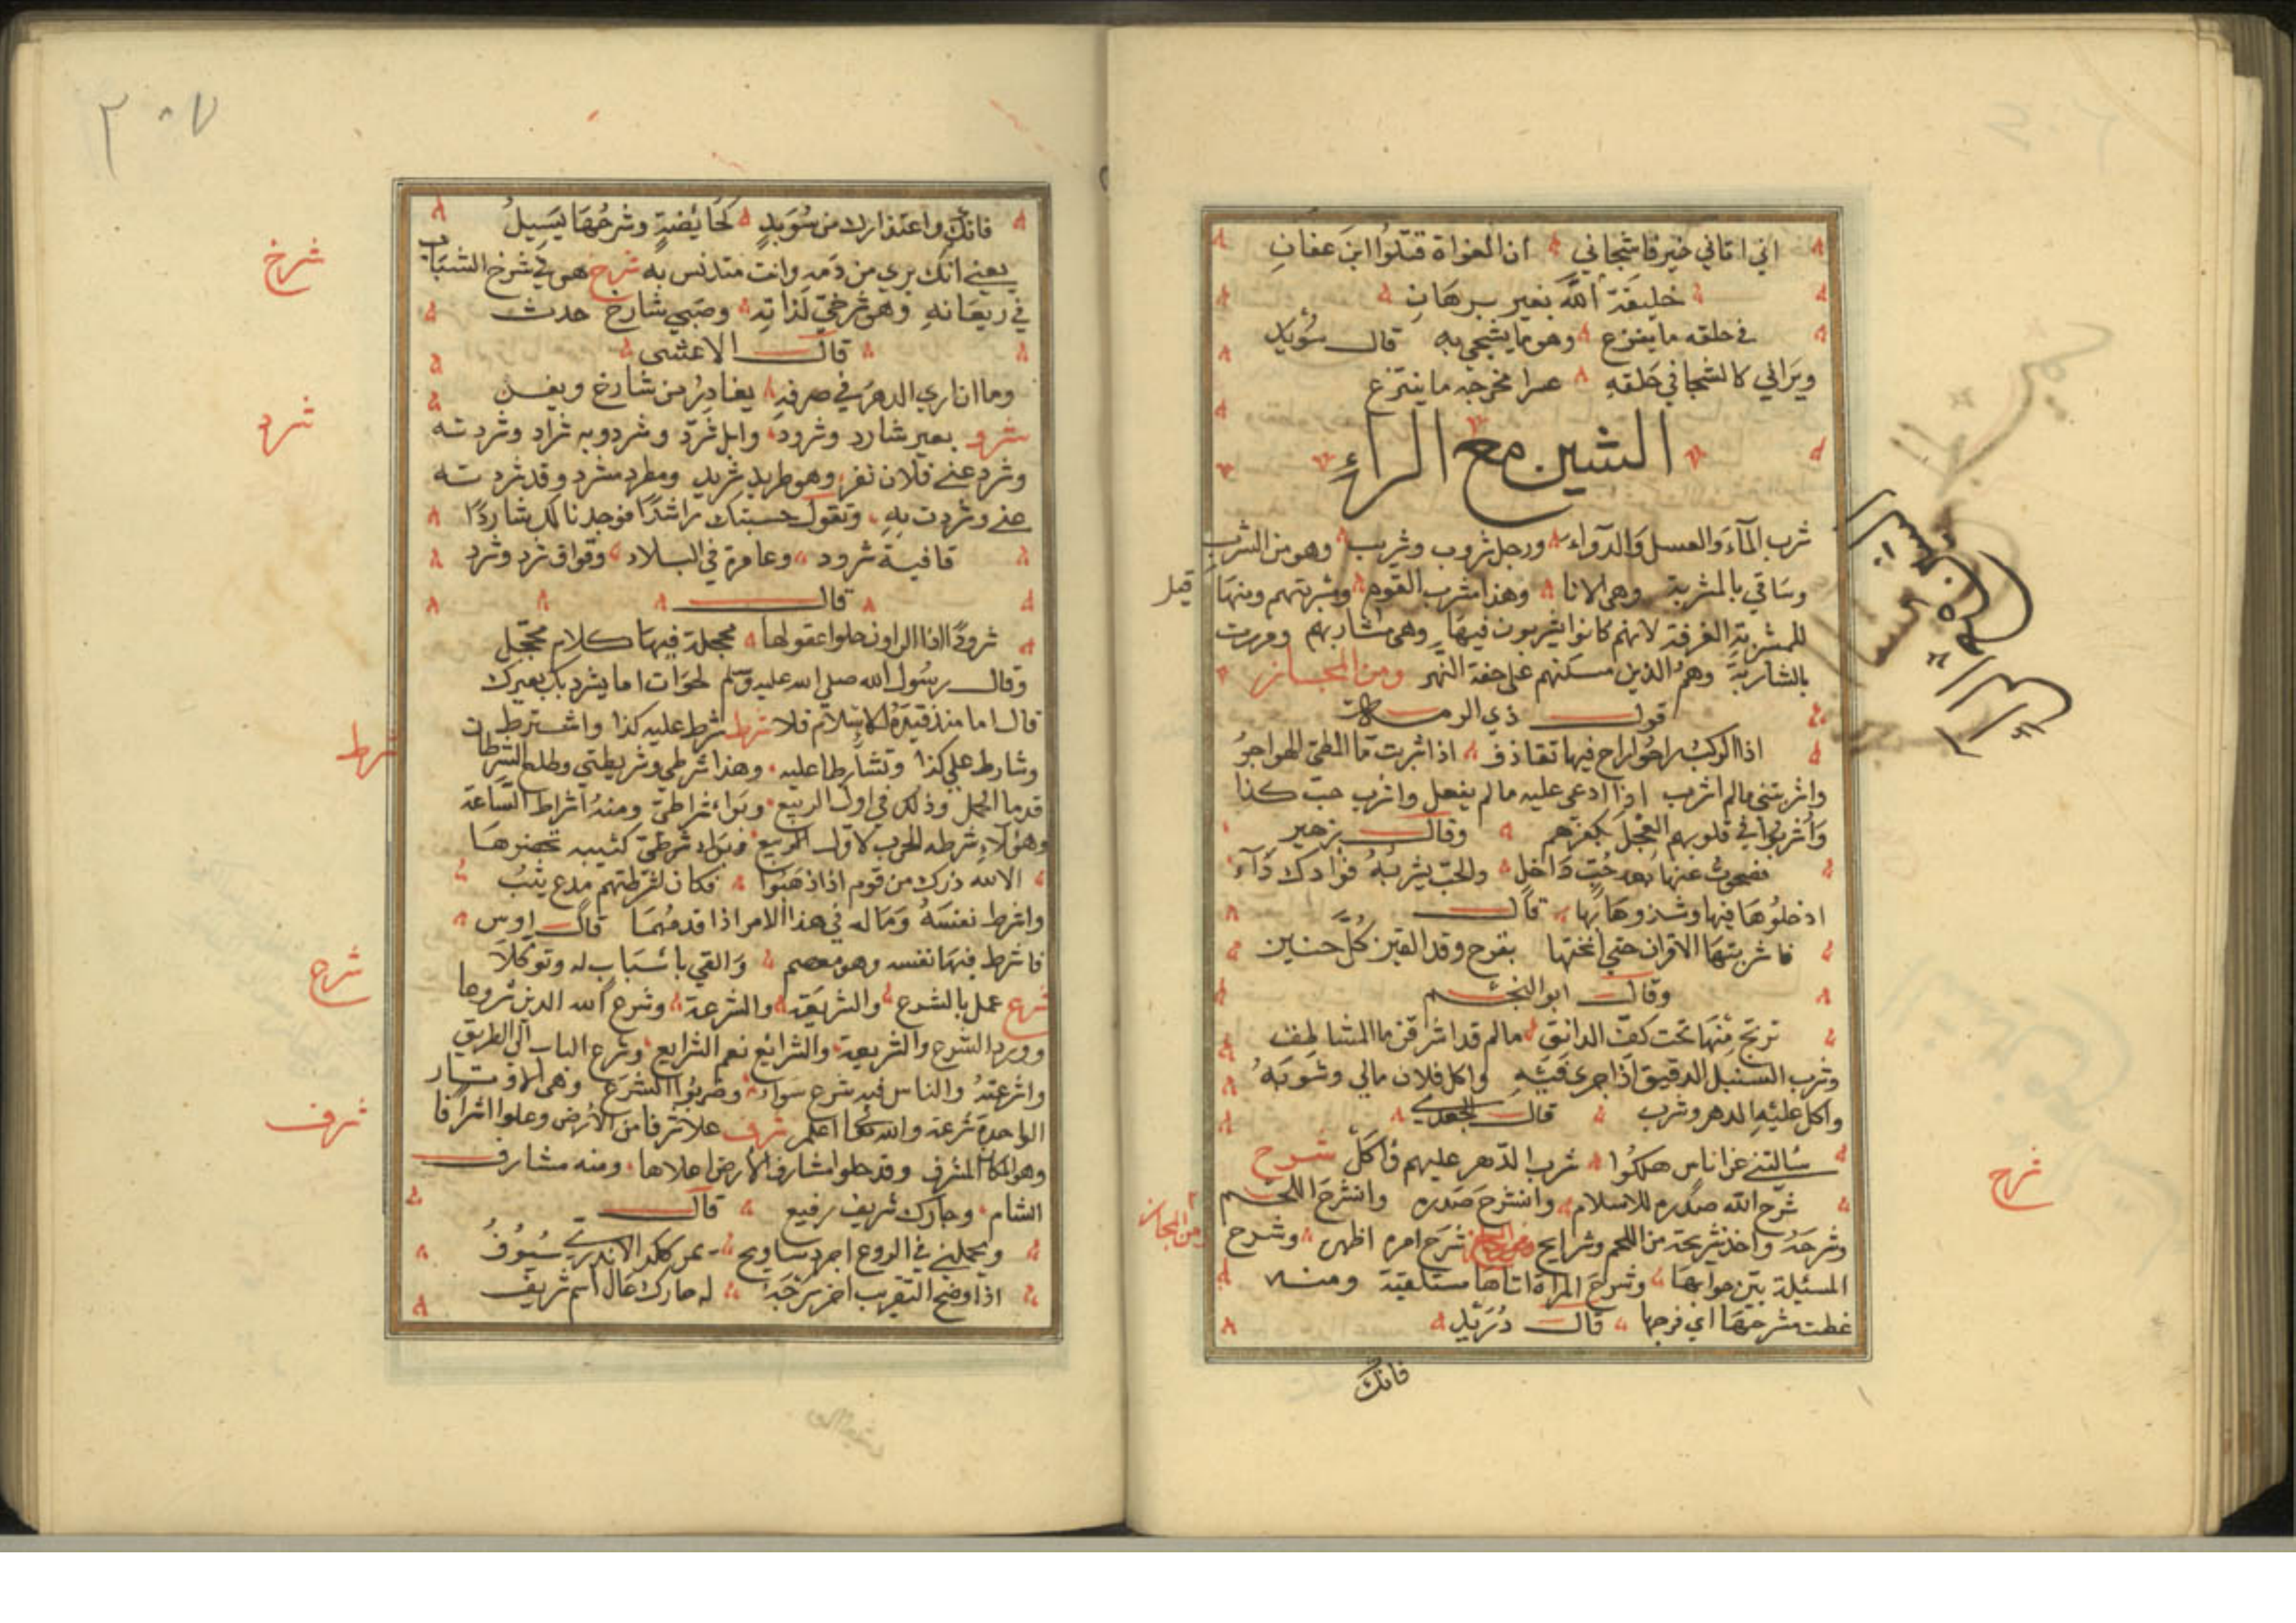 اني اتاني خبر فاشجاني ان الغواة قتلوا ابن عفان
خليفة الله بغير برهان
في حلقه ما ينزع وهو ما يشجي به قال سويد
ويراني كالشجا في حلقه عسرا مخرجه ما ينتزع
الشين مع الراء
شرب الماء والعسل والدواء ورجل شروب وشريب وهو من الشرب
وساقي بالمشربة وهي الانا وهذا مشرب القوم ومشربتهم ومنها
قيل
للمشربة الغرفة لانهم كانوا يشربون فيها وهي مشاربهم ومررت
بالشاربة وهم الذين مسكنهم على حفة النهر ومن المجاز
قول ذي الرمة
اذا الركب راحوا راح فيها تقاذف اذا شربت ما المطي الهواجر
واشربتني مالم اشرب اذا ادعى عليه مالم يفعل واشرب حب كذا
وأشربوا في قلوبهم العجل بكفرهم وقال زهير
فصحوت عنها بعد حب داخل والحب يشربه فؤادك داء
ادخلوها فيها وشدوها بها قال
فاشربتها الاقران حتى انختها بقرح وقد القين كل جنين
وقال ابو النجم
ترتج منها تحت كف الذائق
وشرب السنبل الدقيق اذا جرى فيه واكل فلان مالي وشربه
واكل عليه الدهر وشرب قال الجعدي
سألتني عن اناس هلكوا شرب الدهر عليهم وأكل شرح
شرح
شرح الله صدره للاسلام وانشرح صدره وانشرح اللحم
وشرحه واخذ شريحة من اللحم وشرايح شرح امره اظهره وشرح
ومن المجاز
المسئلة بين جوابها وشرح المراة اتاها مستلقية ومنه
غطت مشرحها اي فرجها قال دريد
فانك
٣٠٧
فانك واعتذارك من سويد كحائضة ومشرحها يسيل
يعني انك بري من دمه وانت متدنس به شرخ هو في شرخ الشباب
شرخ
في ريعانه وهو شرخي لذاته وصبي شارخ حدث
قال الاعشى
وما ان اري الدهر في صرفه يغادر من شارخ ويفن
شرد بعير شارد وشرود وابل شرد وشرد وبه شراد وشردته
شرد
وشرد عني فلان نفر وهو طريد شريد ومطرد مشرد وقد شردته
عني وشردت به وتقول حسبتك راشدا فوجدناك شاردا
قافية شرود وعامرة في البلاد وقواف شرد وشرد
قال
شرود اذا الراون حلوا عقولها محجلة فيها كلام محجل
وقال رسول الله صلى الله عليه وسلم لخوات اما يشرد بك بعيرك
قال اما منذ قيده الاسلام فلا شرط شرط عليه كذا واشترط
شرط
وشارط على كذا وتشارطا عليه وهذا شرطي وشريطتي وطلع الشرطان
قدما الحمل وذلك في اول الربيع ونواء شراطي ومنه اشراط الساعة
وهولاء شرطه الحرب لاول كتيبه تحضرها
الا لله درك من قوم اذا ذهبوا فكان لشرطتهم
واشرط نفسه وماله في هذا الامر اذا قدمهما قال اوس
فاشرط فيها نفسه وهو معصم والقي باسباب له وتوكلا
شرع عمل بالشرع والشريعة والشرعة وشرع الله الدين
شرع
وورد الشرع والشريعة والشرائع نعم الشرايع وشرع الباب الى الطريق
واشرعته والناس فيه شرع سواء وضربوا الشرع وهي الاوتار
الواحدة شرعة والله تعالى اعلم شرف علا شرفا من الارض وعلوا اشرافا
شرف
وهو المكان المشرف وقد حلوا مشارف الارض اعلاها ومنه مشارف
الشام وحارك شريف رفيع قال
ويحملني في الروع اجرد سابح ممر ككر الاندري
اذا وضح التقريب له حارك عال اشم شريف